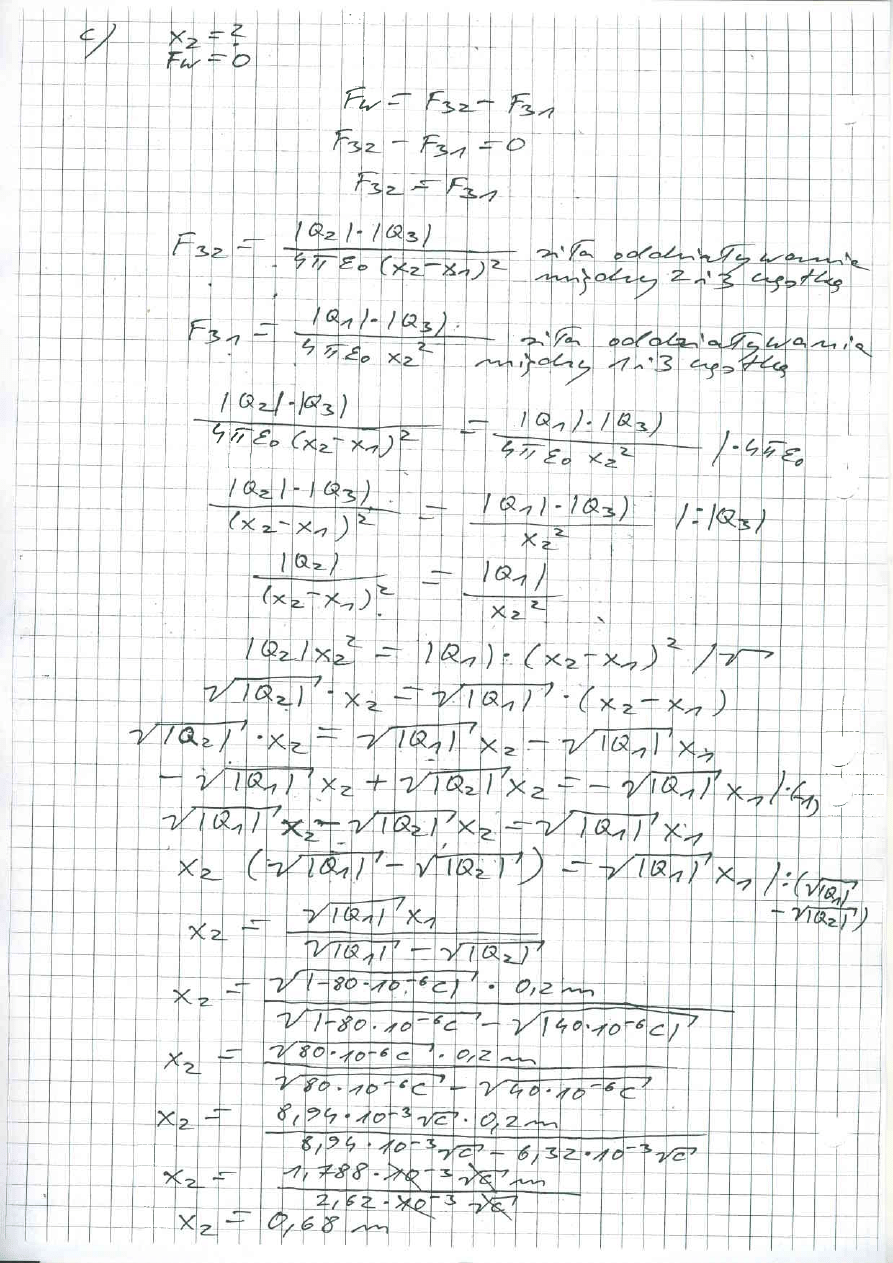 c) x₂ = ?
Fw = 0
Fw = F₃₂ - F₃₁
F₃₂ - F₃₁ = 0
F₃₂ = F₃₁
F₃₂ = |Q₂|·|Q₃| / 4πε₀ (x₂-x₁)² siła oddziaływania
między 2 i 3 cząstką
F₃₁ = |Q₁|·|Q₃| / 4πε₀ x₂² siła oddziaływania
między 1 i 3 cząstką
|Q₂|·|Q₃| / 4πε₀ (x₂-x₁)² = |Q₁|·|Q₃| / 4πε₀ x₂² /·4πε₀
|Q₂|·|Q₃| / (x₂-x₁)² = |Q₁|·|Q₃| / x₂² /:|Q₃|
|Q₂| / (x₂-x₁)² = |Q₁| / x₂²
|Q₂|x₂² = |Q₁|·(x₂-x₁)² /√
√|Q₂| · x₂ = √|Q₁| · (x₂-x₁)
√|Q₂| · x₂ = √|Q₁| x₂ - √|Q₁| x₁
- √|Q₁| x₂ + √|Q₂| x₂ = - √|Q₁| x₁ /·(-1)
√|Q₁| x₂ - √|Q₂| x₂ = √|Q₁| x₁
x₂ (√|Q₁| - √|Q₂|) = √|Q₁| x₁ /:(√|Q₁| - √|Q₂|)
x₂ = √|Q₁| x₁ / √|Q₁| - √|Q₂|
x₂ = √|-80·10⁻⁶C| · 0,2 m / √|-80·10⁻⁶C - √|40·10⁻⁶C|
x₂ = √80·10⁻⁶C · 0,2 m / √80·10⁻⁶C - √40·10⁻⁶C
x₂ = 8,94·10⁻³√C · 0,2 m / 8,94·10⁻³√C - 6,32·10⁻³√C
x₂ = 1,788·10⁻³ √C m / 2,62·10⁻³ √C
x₂ = 0,68 m